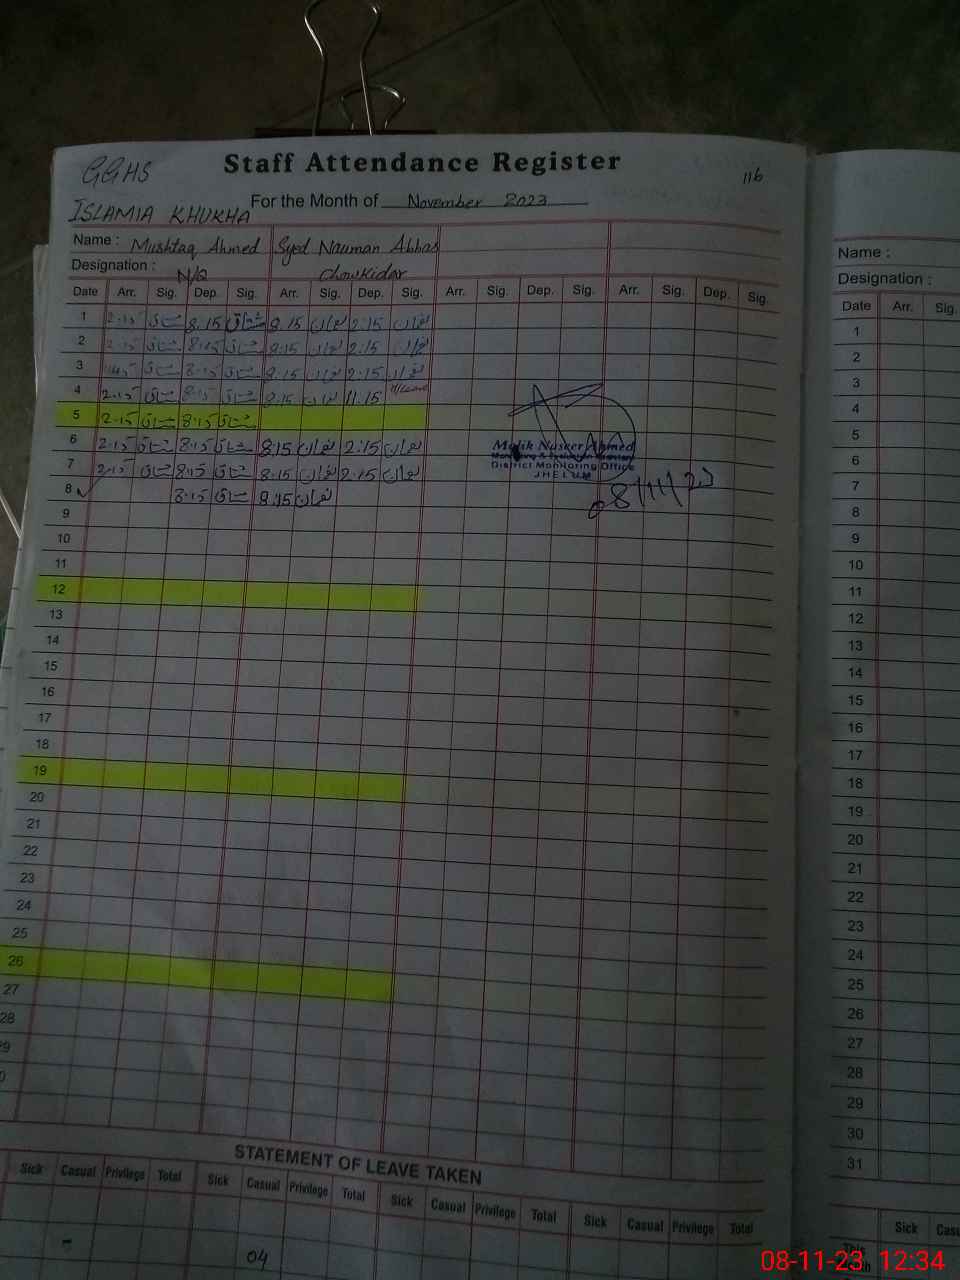 GGHS Staff Attendance Register 116
ISLAMIA KHUKHA For the Month of November 2023
Name : Mushtaq Ahmed Syed Nauman Abbas
Designation : N/Q Chowkidar
Date Arr. Sig. Dep. Sig. Arr. Sig. Dep. Sig. Arr. Sig. Dep. Sig. Arr. Sig. Dep. Sig.
1 2:15 مشتاق 8:15 مشتاق 8:15 نعمان 2:15 نعمان
2 2:15 مشتاق 8:15 مشتاق 8:15 نعمان 2:15 نعمان
3 مشتاق 8:15 مشتاق 8:15 نعمان 2:15 نعمان
4 2:15 مشتاق 8:15 مشتاق 8:15 نعمان 11:15
5 2:15 مشتاق 8:15 مشتاق
6 2:15 مشتاق 8:15 مشتاق 8:15 نعمان 2:15 نعمان
7 2:15 مشتاق 8:15 مشتاق 8:15 نعمان 2:15 نعمان
8 8:15 مشتاق 8:15 نعمان
9
10
11
12
13
14
15
16
17
18
19
20
21
22
23
24
25
26
27
28
Malik Nuseer Ahmed
District Monitoring Office
JHELUM
08/11/23
STATEMENT OF LEAVE TAKEN
Sick Casual Privilege Total Sick Casual Privilege Total Sick Casual Privilege Total Sick Casual Privilege Total
04
Name :
Designation :
Date Arr. Sig.
1
2
3
4
5
6
7
8
9
10
11
12
13
14
15
16
17
18
19
20
21
22
23
24
25
26
27
28
29
30
31
Sick
This
08-11-23 12:34